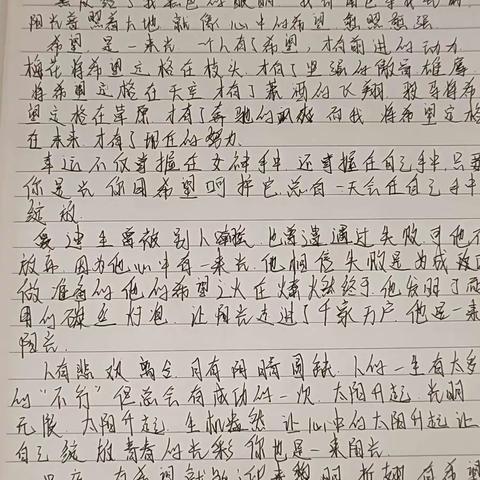 阳光普照着大地 就像心中的希望 愈照愈强
希望 是一束光 一个人有了希望,才有前进的动力
梅花将希望定格在枝头 才有了坚强的傲骨雄厚
将希望定格在天空 才有了潇洒的飞翔 骏马将希
望定格在草原 才有了奔驰的风格 而我 将希望定格
在未来 才有了现在的努力
幸运不仅掌握在女神手中 还掌握在自己手中 只要
你是光 你用希望呵护它 总有一天会在自己手中
绽放
生曾被别人嘲笑 也曾遭遇过失败 可他不
放弃 因为他心中有一束光 他相信失败是为成功
做准备的 他的希望之火在燃 终于他发明了
用的碳丝灯泡 让阳光走进了千家万户 他是一束
阳光
人有悲欢离合 月有阴晴圆缺 人的一生有太多
的“不行” 但总会有成功的一次 太阳升起 光明
无限 太阳升起 生机盎然 让心中的太阳升起 让
自己绽放青春的光彩 你也是一束阳光